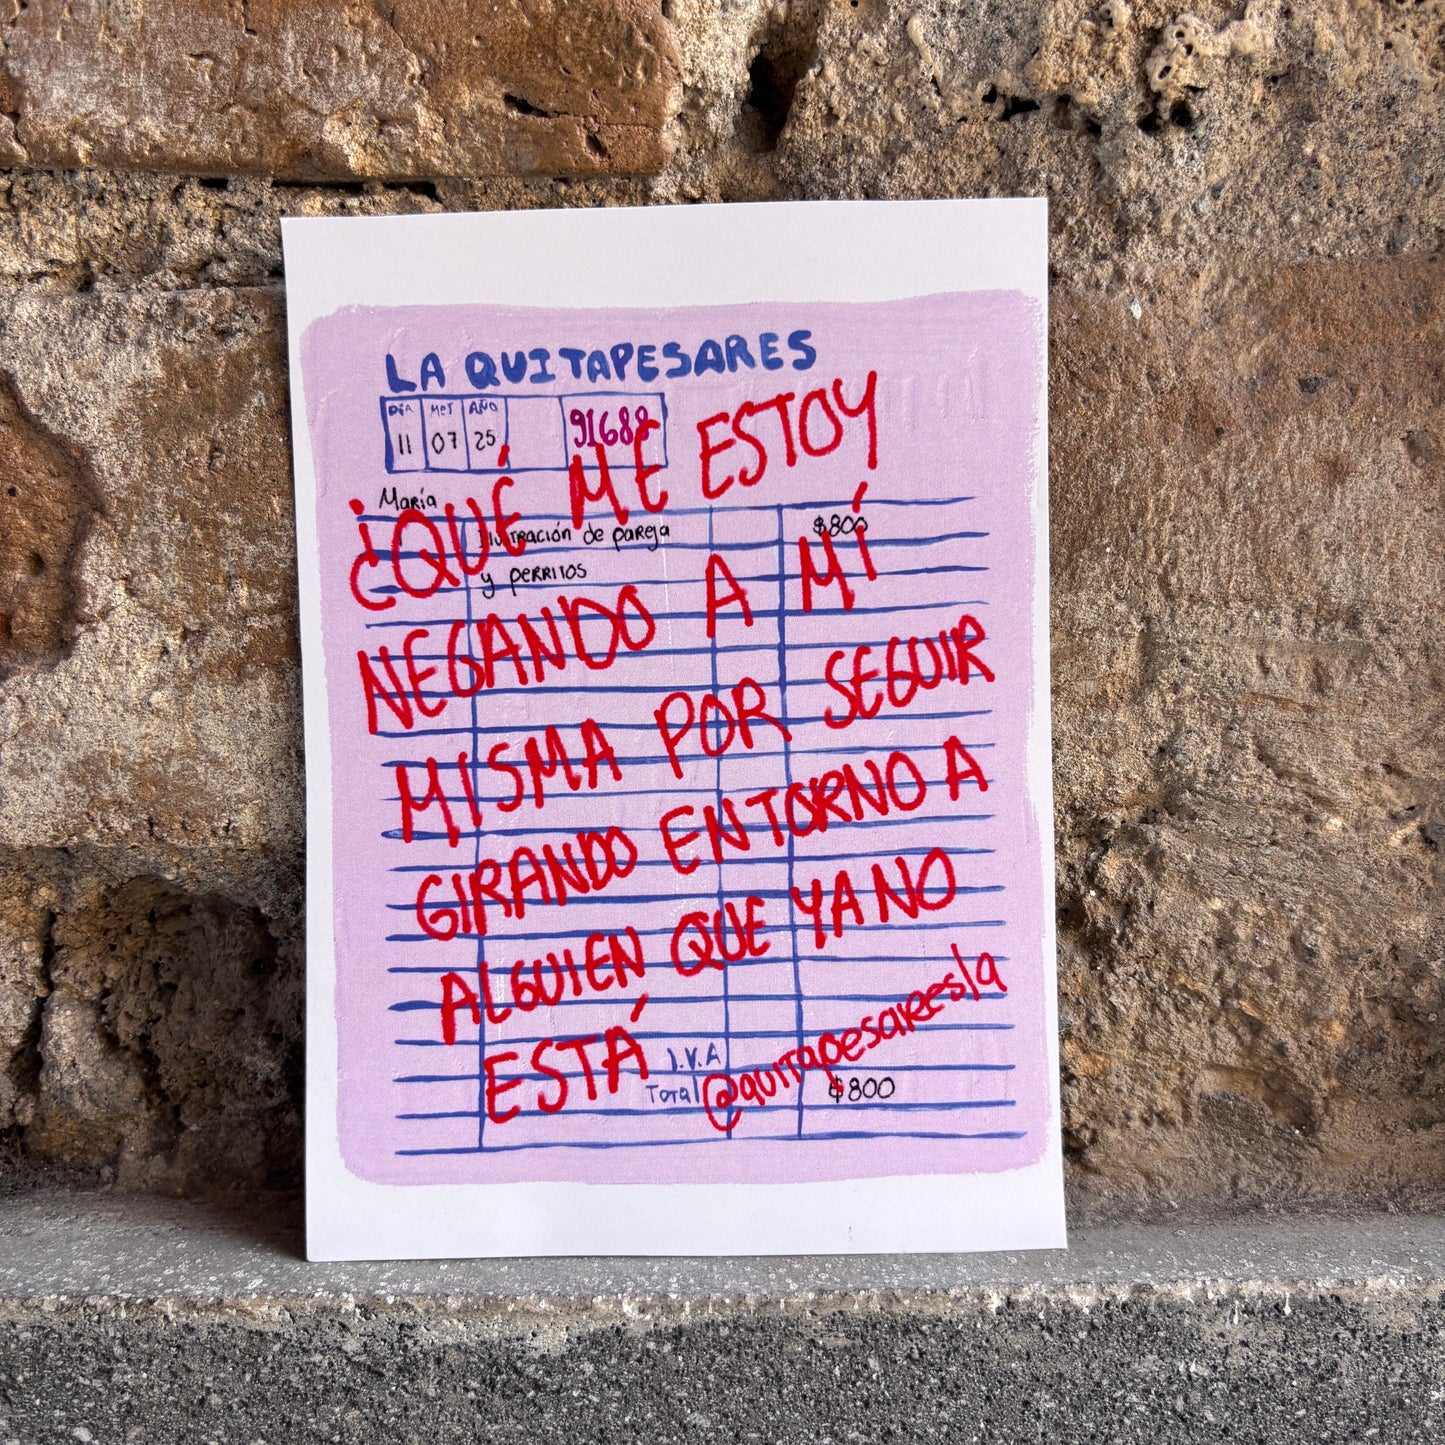 LA QUITAPESARES
DÍA MES AÑO
11 07 25 91688
María
Ilustración de pareja $800
y perritos
¿QUÉ ME ESTOY
NEGANDO A MÍ
MISMA POR SEGUIR
GIRANDO EN TORNO A
ALGUIEN QUE YA NO
ESTÁ
I.V.A
Total $800
@quitapesaresla